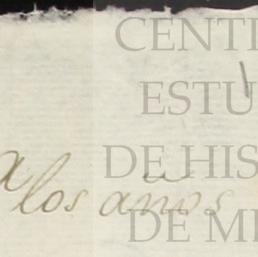 CENT
ESTU
DE HIS
a los años
DE M